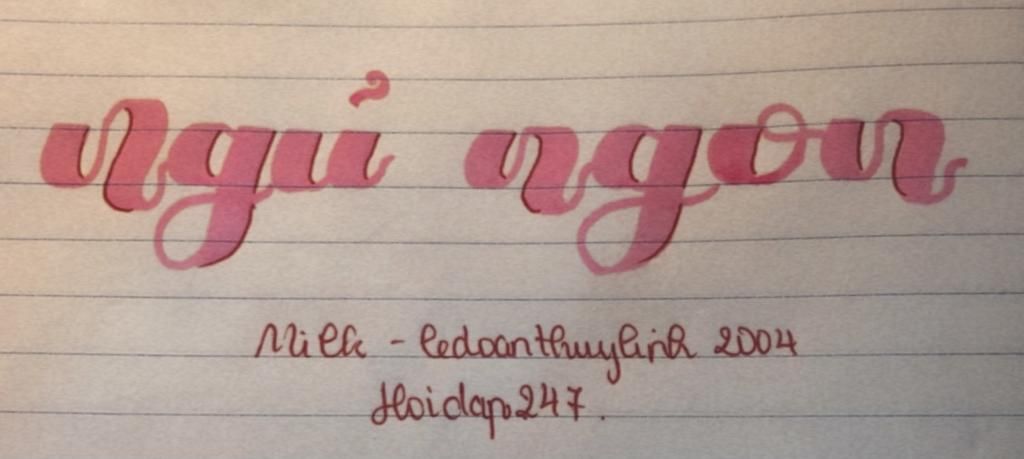 ngủ ngon
Milk - ledoanthuylinh 2004
Hoidap247.